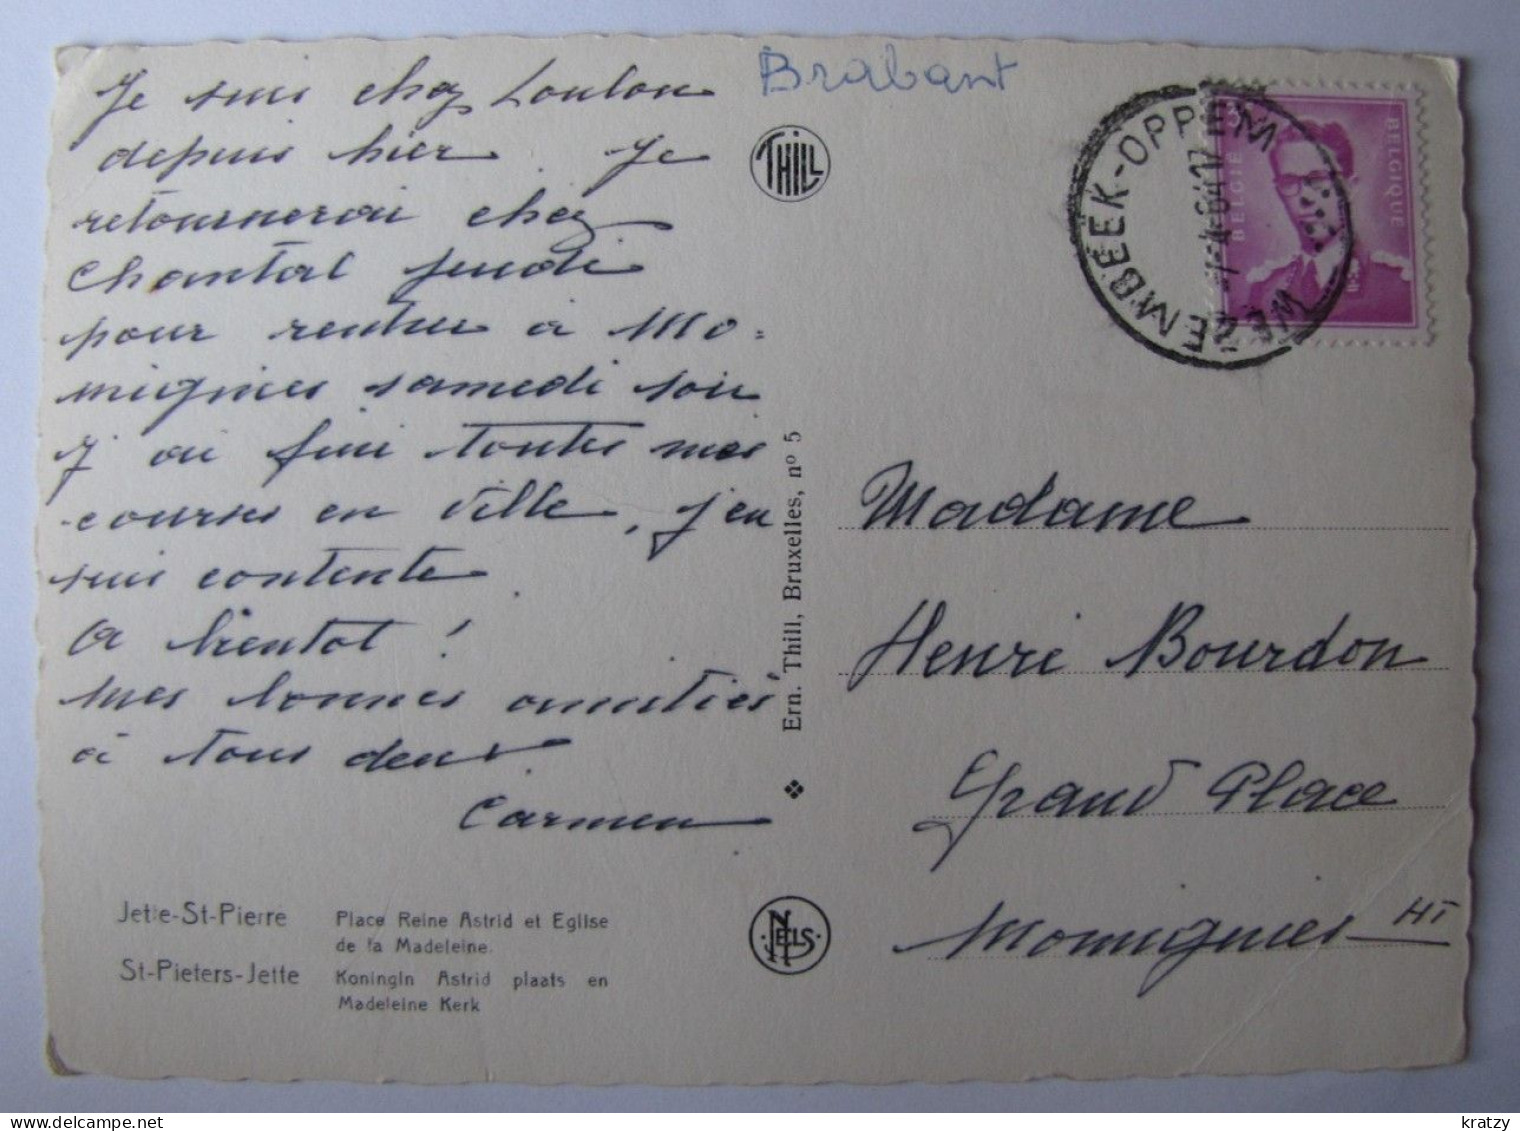 Je suis chez Loulou
depuis hier. Je
retournerai chez
Chantal jeudi
pour rentrer à Mo=
mignies samedi soir
J'ai fini toutes mes
courses en ville, j'en
suis contente
A bientot !
Mes bonnes amitiés
à tous deux
Carmen
Jette-St-Pierre
Place Reine Astrid et Eglise
de la Madeleine.
St-Pieters-Jette
Koningin Astrid plaats en
Madeleine Kerk
Brabant
THILL
Ern. Thill, Bruxelles, nº 5
NELS
WEZEMBEEK-OPPEM
-4-64 17
BELGIE
BELGIQUE
Madame
Henri Bourdon
Grand Place
Momignies HT
kratzy